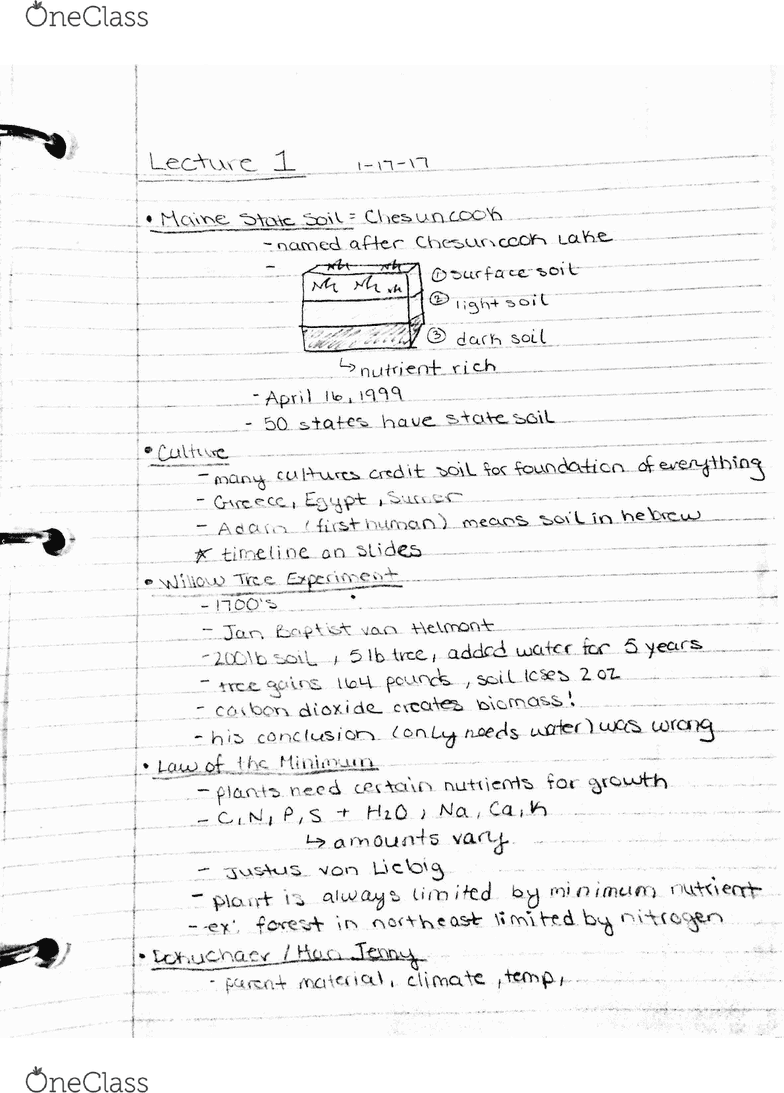 OneClass
Lecture 1 1-17-17
• Maine State Soil = Chesuncook
- named after Chesuncook Lake
-
① surface soil
② light soil
③ dark soil
↳ nutrient rich
- April 16, 1999
- 50 states have state soil
• Culture
- many cultures credit soil for foundation of everything
- Greece, Egypt, Sumer
- Adam (first human) means soil in hebrew
* timeline on slides
• Willow Tree Experiment
- 1700's
- Jan Baptist van Helmont
- 200 lb soil, 5 lb tree, added water for 5 years
- tree gains 164 pounds, soil loses 2 oz
- carbon dioxide creates biomass!
- his conclusion (only needs water) was wrong
• Law of the Minimum
- plants need certain nutrients for growth
- C, N, P, S + H2O, Na, Ca, K
↳ amounts vary
- Justus von Liebig
- plant is always limited by minimum nutrient
- ex: forest in northeast limited by nitrogen
• / Han Jenny
- parent material, climate, temp,
OneClass